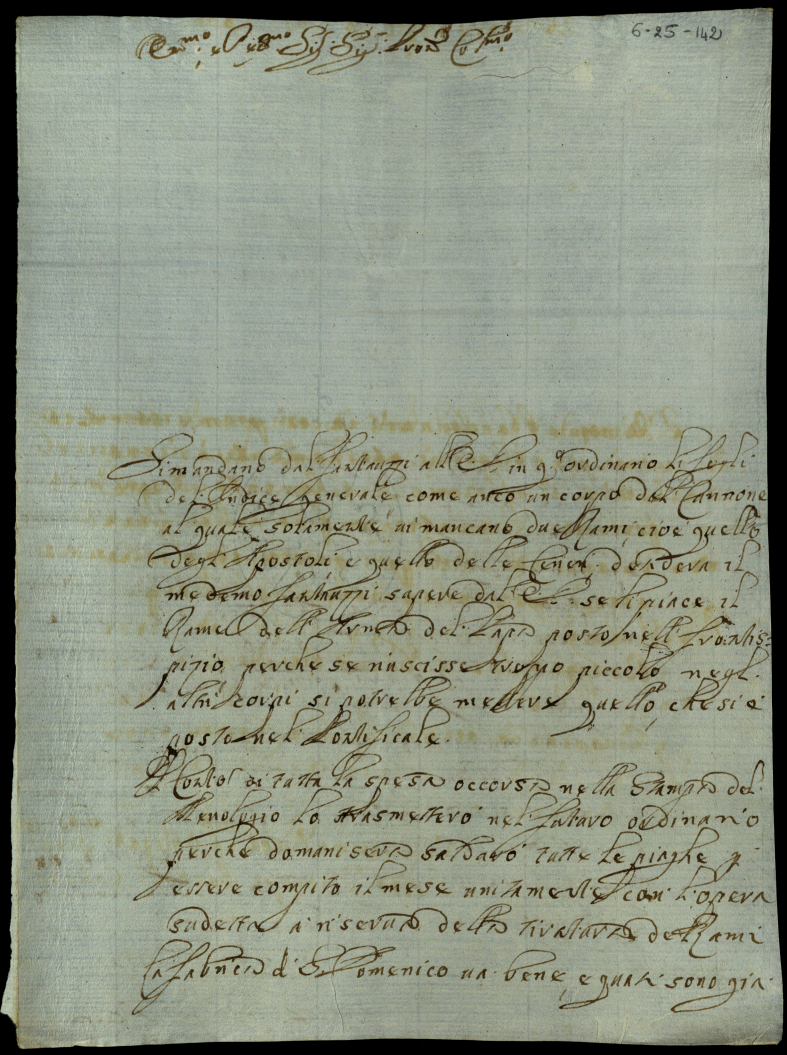 6-25-142
Em.mo e R.mo Sig.r Sig.r Pron. Col.mo
Si mandano dal Fantauzzi all'E.V. in q.o ordinario li fogli
del Indice generale come anco un corpo del Cannone
al quale solamente vi mancano due Rami, cioè quello
degl'Apostoli e quello delle Cenen. desidera il
medemo Fantauzzi sapere dall'E.V. se li piace il
Rame dell'Arma del Papa posto nell frontis=
pizio, perche se riuscisse troppo piccolo negl'
altri corpi si potrebbe mettere quello, che si è
posto nel Pontificale.
Il Conto di tutta la spesa occorsa nella stampa del
Menologio lo trasmetterò nel futuro ordinario
perche domani sera saldarò tutte le piaghe p
essere compito il mese unitamente con l'opera
sudetta a riserva della tiratura de Rami
La fabrica di S. Domenico va bene, e quasi sono gia